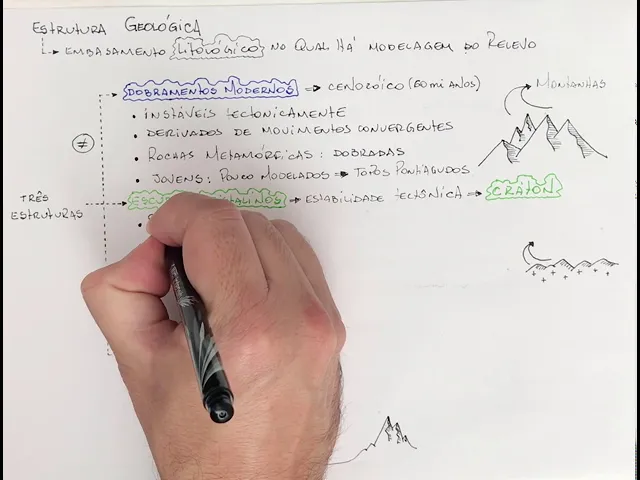 ESTRUTURA GEOLÓGICA
EMBASAMENTO LITOLÓGICO NO QUAL HÁ MODELAGEM DO RELEVO
DOBRAMENTOS MODERNOS => CENOZÓICO (60 mi ANOS)
MONTANHAS
• INSTÁVEIS TECTONICAMENTE
• DERIVADOS DE MOVIMENTOS CONVERGENTES
≠
• ROCHAS METAMÓRFICAS: DOBRADAS
• JOVENS: POUCO MODELADOS => TOPOS PONTIAGUDOS
TRÊS ESTRUTURAS
→ ESTABILIDADE TECTÔNICA => CRÁTON